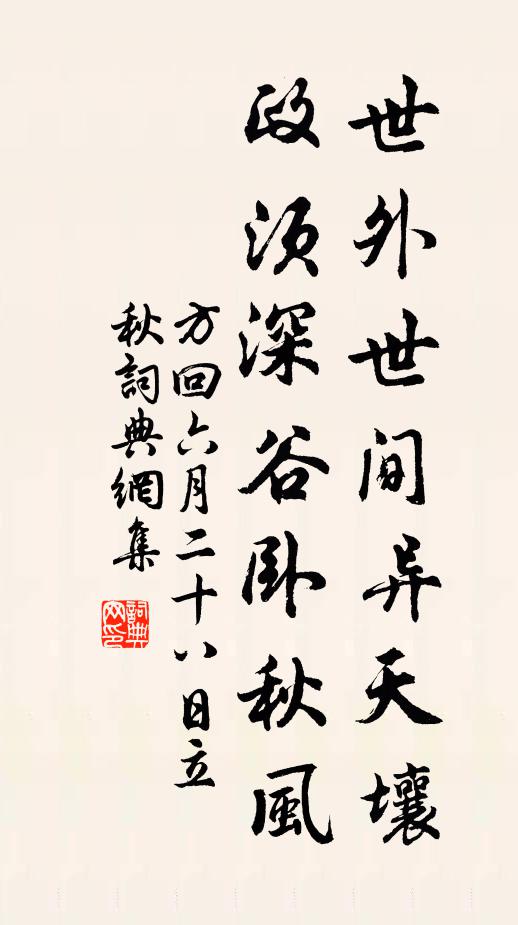 世外世間异天壤
政須深谷卧秋風
方回六月二十八日立
秋詞典網集
詞典网印